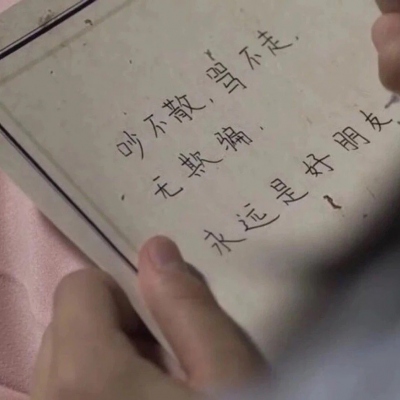 吵不散,骂不走,
无欺骗,
永远是好朋友,